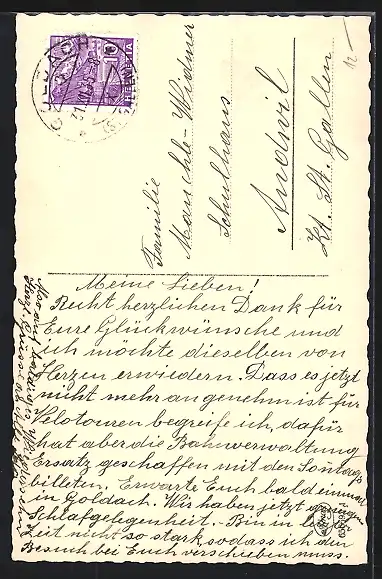 HELVETIA
10
Familie
Manchle-Widmer
Schulhaus
Andwil
Kt. St. Gallen
12.-
Meine Lieben!
Recht herzlichen Dank für
Eure Glückwünsche und
ich möchte dieselben von
Herzen erwiedern. Dass es jetzt
nicht mehr angenehm ist für
Velotouren begreife ich, dafür
hat aber die Bahnverwaltung
Ersatz geschaffen mit den Sontags
billeten. Erwarte Euch bald einmal
in Goldach. Wir haben jetzt
Schlafgelegenheit. - Bin in
Zeit nicht so stark, sodass ich den
Besuch bei Euch verschieben muss.